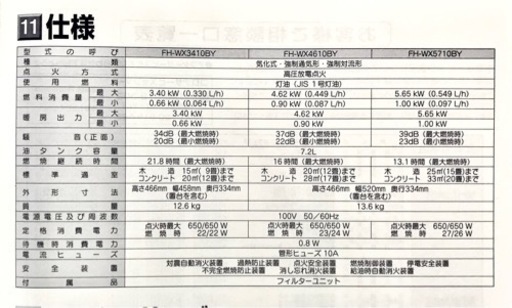 11 仕様
型式の呼び FH-WX3410BY FH-WX4610BY FH-WX5710BY
種類 気化式・強制通気形・強制対流形
点火方式 高圧放電点火
使用燃料 灯油（JIS 1号灯油）
燃料消費量 最大 3.40 kW (0.330 L/h) 4.62 kW (0.449 L/h) 5.65 kW (0.549 L/h)
最小 0.66 kW (0.064 L/h) 0.90 kW (0.087 L/h) 1.00 kW (0.097 L/h)
暖房出力 最大 3.40 kW 4.62 kW 5.65 kW
最小 0.66 kW 0.90 kW 1.00 kW
騒音(正面) 34dB（最大燃焼時） 37dB（最大燃焼時） 39dB（最大燃焼時）
20dB（最小燃焼時） 22dB（最小燃焼時） 23dB（最小燃焼時）
油タンク容量 7.2L
燃焼継続時間 21.8時間（最大燃焼時） 16時間（最大燃焼時） 13.1時間（最大燃焼時）
標準適室 木造 15㎡( 9畳)まで 木造 20㎡(12畳)まで 木造 25㎡(15畳)まで
コンクリート 20㎡(12畳)まで コンクリート 28㎡(17畳)まで コンクリート 33㎡(20畳)まで
外形寸法 高さ466mm 幅458mm 奥行334mm 高さ466mm 幅520mm 奥行334mm
（置台を含む） （置台を含む）
質量 12.6 kg 13.6 kg
電源電圧及び周波数 100V 50／60Hz
定格消費電力 点火時最大 650/650 W 点火時最大 650/650 W 点火時最大 650/650 W
燃焼時 22/22 W 燃焼時 24/24 W 燃焼時 27/26 W
待機時消費電力 0.8 W
電流ヒューズ 管形ヒューズ 10A
安全装置 対震自動消火装置 過熱防止装置 点火安全装置 燃焼制御装置 停電安全装置
不完全燃焼防止装置 消し忘れ消火装置 給油時自動消火装置
付属品 フィルターユニット